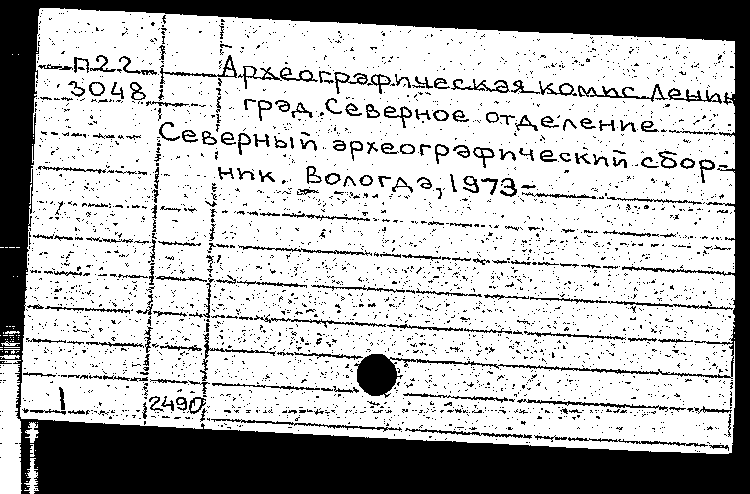 П22
3048
Археографическая комис. Ленин
град. Северное отделение
Северный археографический сбор-
ник. Вологда, 1973-
1
2490